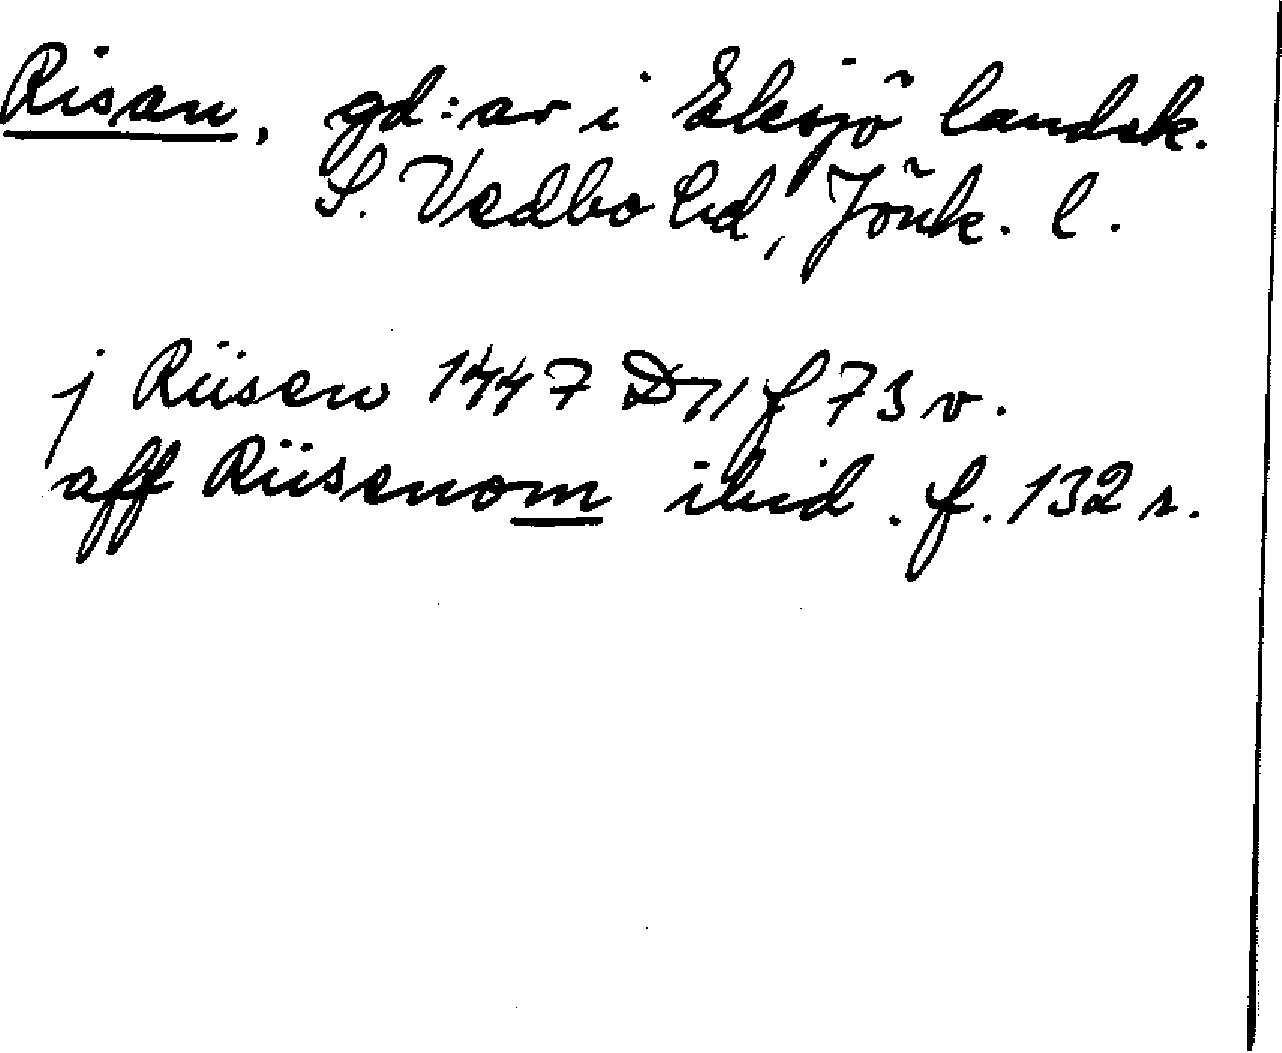 Risan, gd:ar i Eksjö landsk.
S. Vedbo hd, Jönk. l.
j Riisen 1447 D11 f 73 v.
aff Riisenom ibid. f. 132 r.